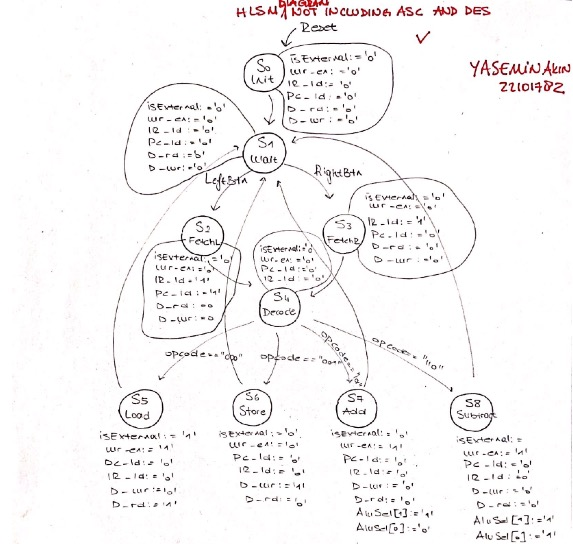 DIAGRAM
HLSM, NOT INCLUDING ASC AND DES
Reset
YASEMIN AKIN
22101782
S0
Init
isExternal:='0'
wr-en:='0'
IR-ld:='0'
PC-ld:='0'
D-rd:='0'
D-wr:='0'
isExternal:='0'
wr-en:='0'
IR-ld:='0'
PC-ld:='0'
D-rd:='0'
D-wr:='0'
S1
Wait
LeftBtn
RightBtn
S2
FetchL
isExternal:='0'
wr-en:='0'
IR-ld:='1'
PC-ld:='1'
D-rd:=0
D-wr:=0
S3
FetchR
isExternal:='0'
wr-en:='0'
IR-ld:='1'
PC-ld:='0'
D-rd:='0'
D-wr:='0'
isExternal:='0'
wr-en:='0'
PC-ld:='0'
IR-ld:='0'
S4
Decode
opcode=="000"
opcode=="001"
opcode=
opcode="110"
S5
Load
isExternal:='1'
wr-en:='1'
PC-ld:='0'
IR-ld:='0'
D-wr:='0'
D-rd:='1'
S6
Store
isExternal:='0'
wr-en:='0'
PC-ld:='0'
IR-ld:='0'
D-wr:='1'
D-rd:='0'
S7
Add
isExternal:='0'
wr-en:='1'
PC-ld:='0'
IR-ld:='0'
D-wr:='0'
D-rd:='0'
AluSel[1]:='1'
AluSel[0]:='0'
S8
Subtract
isExternal:=
wr-en:='1'
PC-ld:='0'
IR-ld:='0'
D-wr:='0'
D-rd:='0'
AluSel[1]:='1'
AluSel[0]:='1'